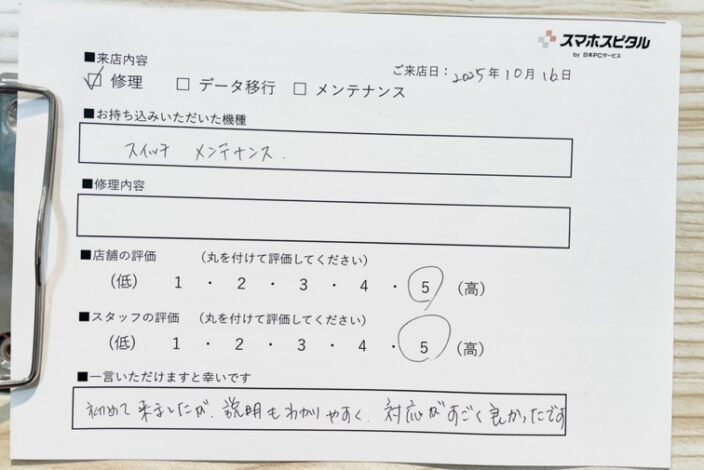 スマホスピタル
by 日本PCサービス
■来店内容
ご来店日：2025年10月16日
☑ 修理 □ データ移行 □ メンテナンス
■お持ち込みいただいた機種
スイッチ メンテナンス.
■修理内容
■店舗の評価 （丸を付けて評価してください）
（低） 1 ・ 2 ・ 3 ・ 4 ・ 5 （高）
■スタッフの評価 （丸を付けて評価してください）
（低） 1 ・ 2 ・ 3 ・ 4 ・ 5 （高）
■一言いただけますと幸いです
初めて来ましたが、説明もわかりやすく、対応がすごく良かったです